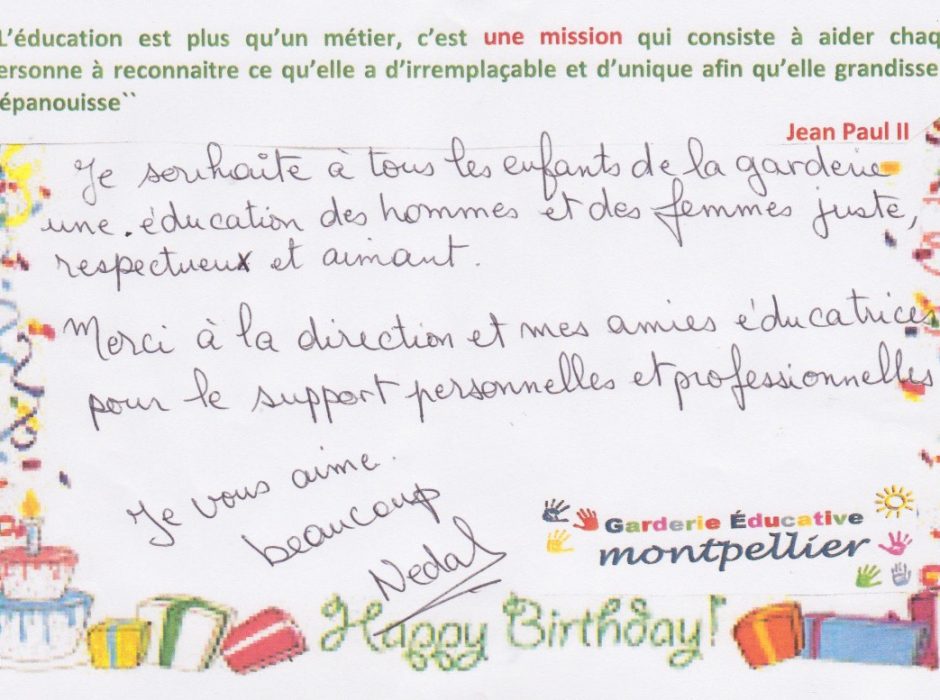 L'éducation est plus qu'un métier, c'est une mission qui consiste à aider chaq
ersonne à reconnaitre ce qu'elle a d'irremplaçable et d'unique afin qu'elle grandisse
épanouisse``
Jean Paul II
Je souhaite à tous les enfants de la garderie
une éducation des hommes et des femmes juste,
respectueux et aimant.
Merci à la direction et mes amies éducatrices
pour le support personnelles et professionnelles
Je vous aime.
beaucoup
Nedal
Garderie Éducative
montpellier
Happy Birthday!